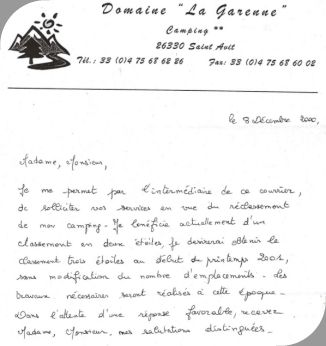 Domaine "La Garenne"
Camping **
26330 Saint Avit
Tél.: 33 (0)4 75 68 62 26 Fax: 33 (0)4 75 68 60 02
le 8 Décembre 2000,
Madame, Monsieur,
Je me permet par l'intermédiaire de ce courrier,
de solliciter vos services en vue du reclassement
de mon camping. Je bénéficie actuellement d'un
classement en deux étoiles, je desirerai obtenir le
classement trois étoiles au début du printemps 2001,
sans modification du nombre d'emplacements. Les
travaux nécessaires seront réalisés à cette époque.
Dans l'attente d'une réponse favorable, recevez
Madame, Monsieur, mes salutations distinguées.